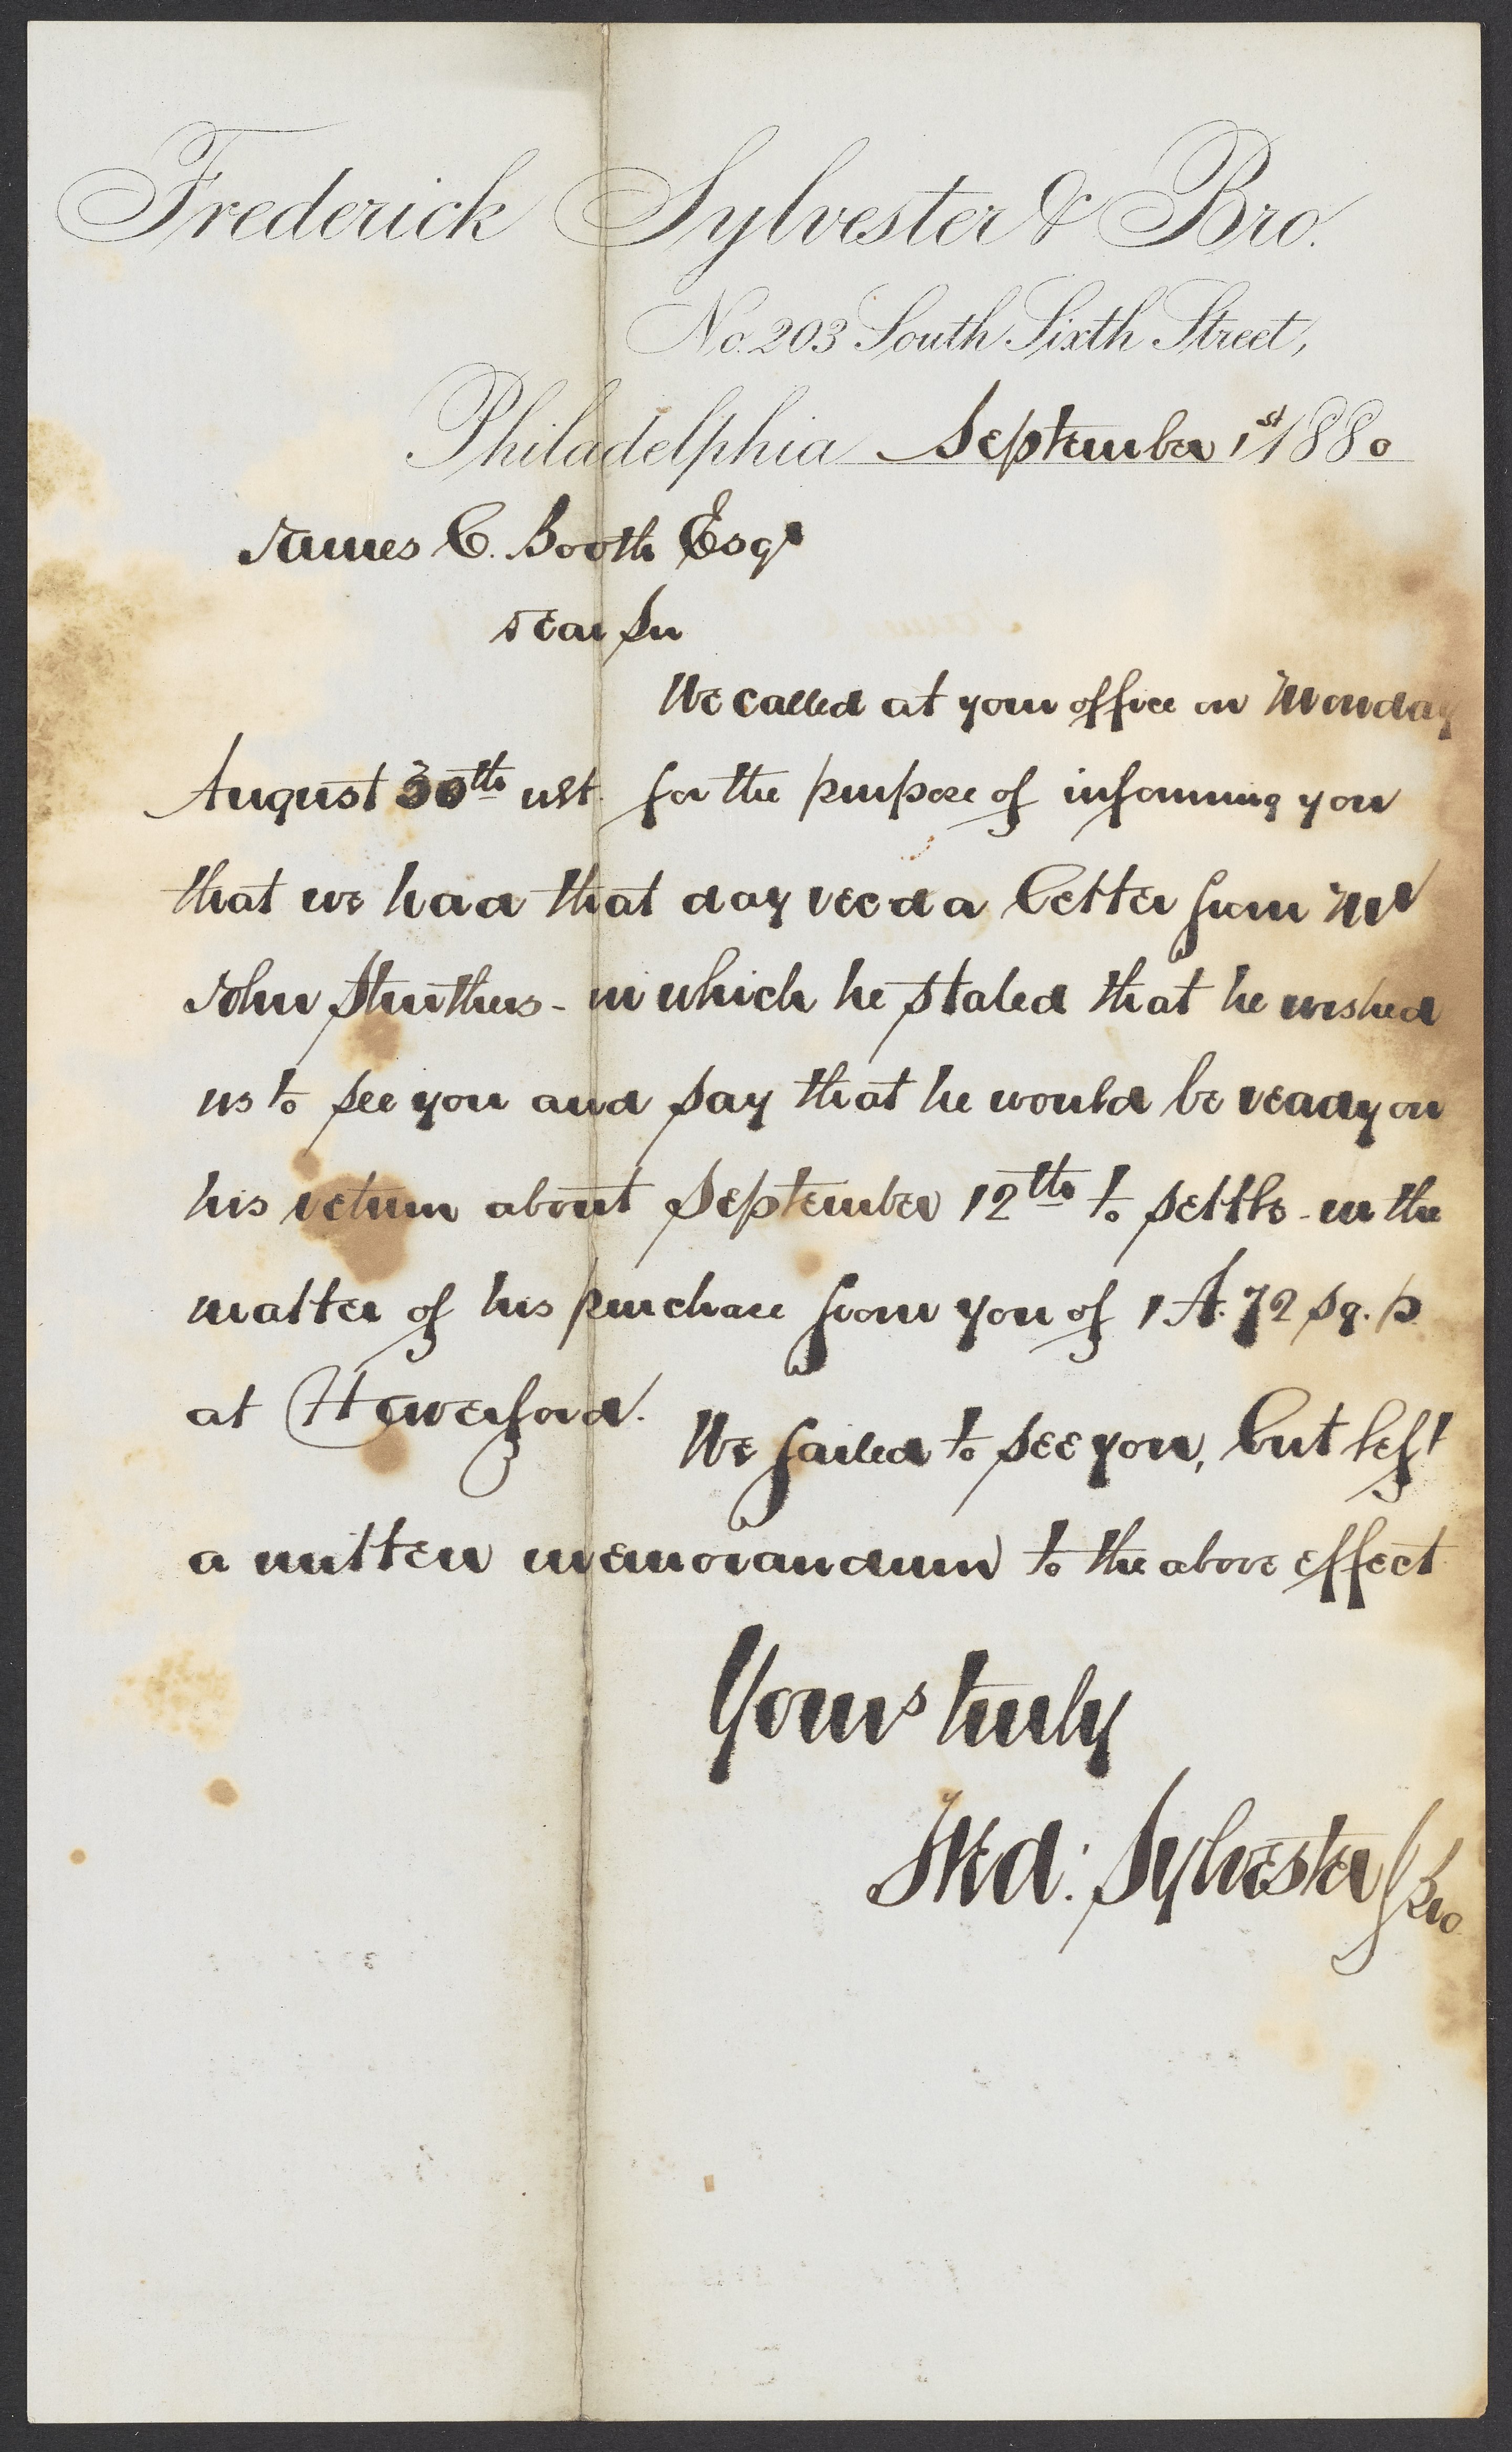 Frederick Sylvester & Bro.
No. 203 South Sixth Street,
Philadelphia September 1st 1880
James C. Booth Esqr
Dear Sir
We called at your office on Monday
August 30th ult. for the purpose of informing you
that we had that day recd a letter from Mr
John Struthers - in which he stated that he wished
us to see you and say that he would be ready on
his return about September 12th to settle - in the
matter of his purchase from you of 1 A. 72 sq. p.
at Haverford.
We failed to see you, but left
a written memorandum to the above effect
Yours truly
Fred: Sylvester & Bro